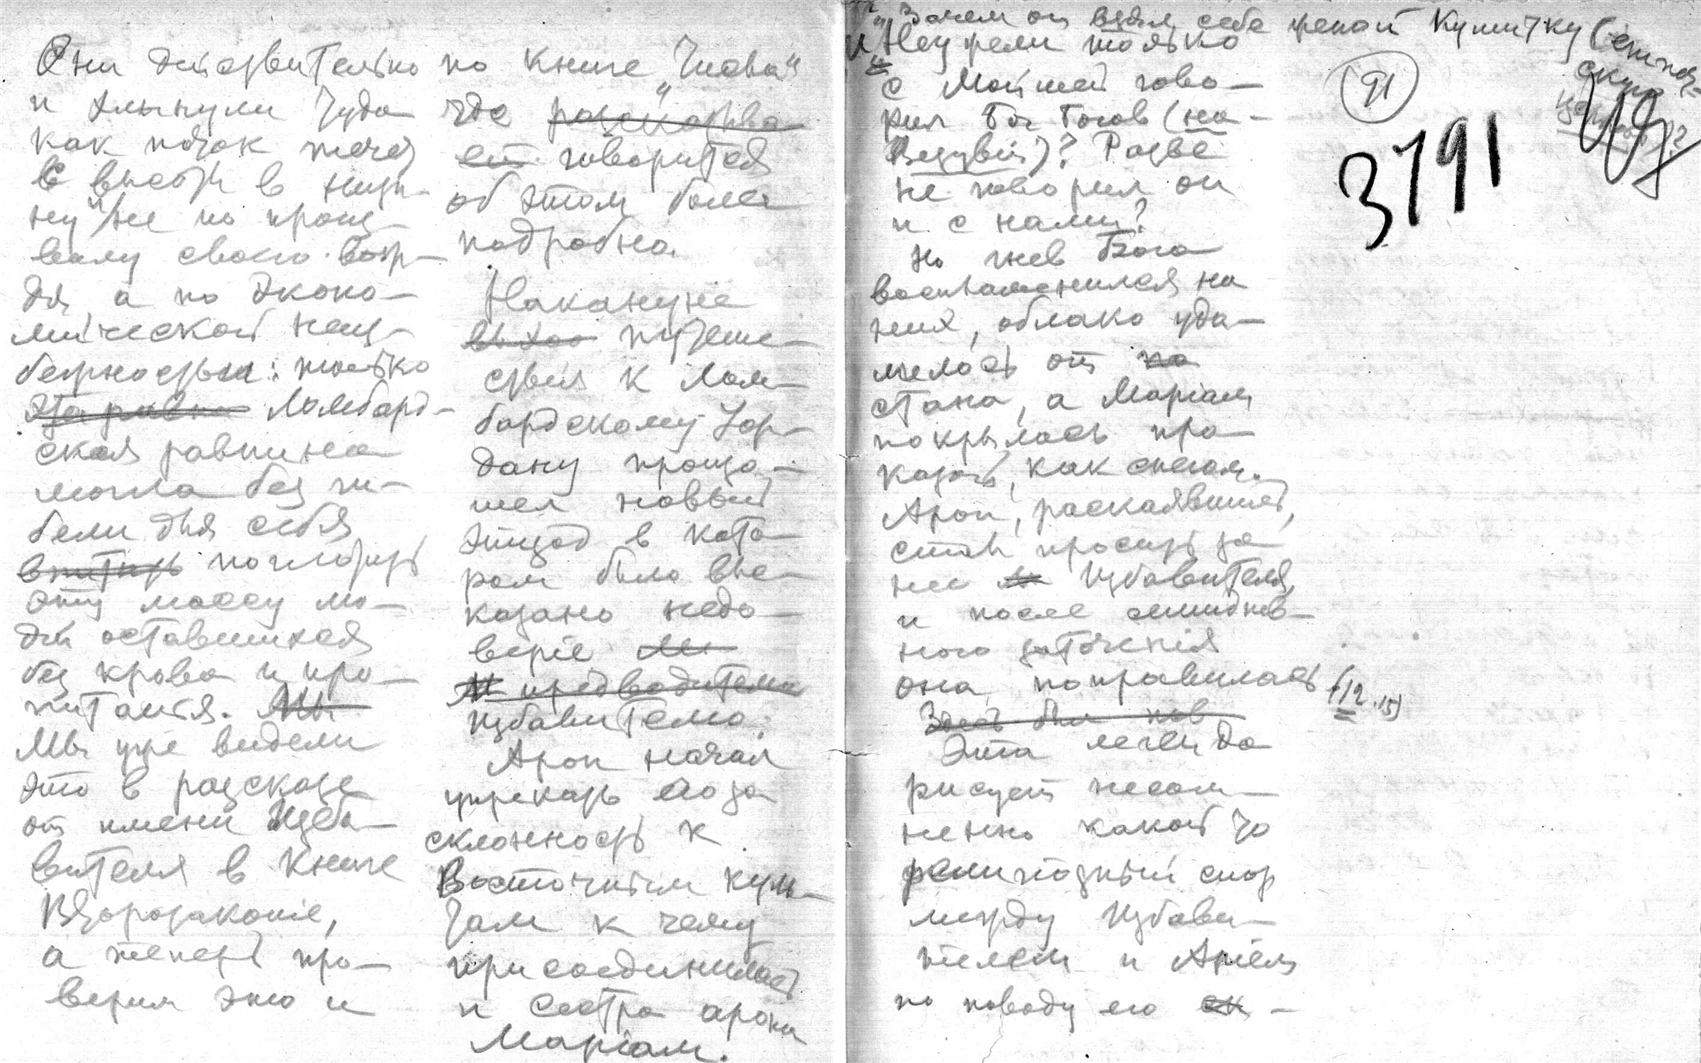 Они действительно
и хлынули туда
как поток течет
с высот в низи-
ну не по произ-
волу своего вож-
дя а по эконо-
мической неиз-
бежности: только
Ломбард-
ская равнина
могла без ги-
бели для себя
впитать поглотить
эту массу лю-
дей оставшихся
без крова и про-
питания. Мы
Мы уже видели
это в разсказе
от имени Изба-
вителя в Книге
Второзаконіе,
а теперь про-
верим это и
по книге „Числа“
где разсказыва
ет говорится
об этом более
подробно.
Накануне
выхо путеше-
ствия к Лом-
бардскому Іор-
дану произо-
шел новый
эпизод в кото-
ром было выс-
казано недо-
веріе
предводителю
Избавителю:
Арон начал
упрекать его за
склонность к
Восточным куль-
там к чему
присоединилась
и сестра арона
Маріам.
„Зачем он взял себе женой Кушитку
„Неужели только
с Моишей гово-
рил Бог Богов (на
Везувіи)? Разве
не говорил он
и с нами?
Но гнев Бога
воспламенился на
них, облако уда-
лилось от
стана, а Маріам
покрылась про
казой, как снегом.
Арон, раскаявшись,
стал просить за
нее Избавителя,
и после семиднев-
ного заточенія
она поправилась (12.15)
Здесь был нов
Эта легенда
рисует несом-
ненно какой то
религіозный спор
между Избави-
телем и Аріем
по поводу его
91
3791